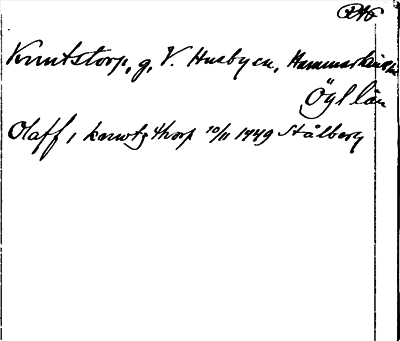 Knutstorp, g, V. Husby sn, Hammarkinds
Ögl län
Olaff i knwtz thorp 10/11 1449 Stålberg